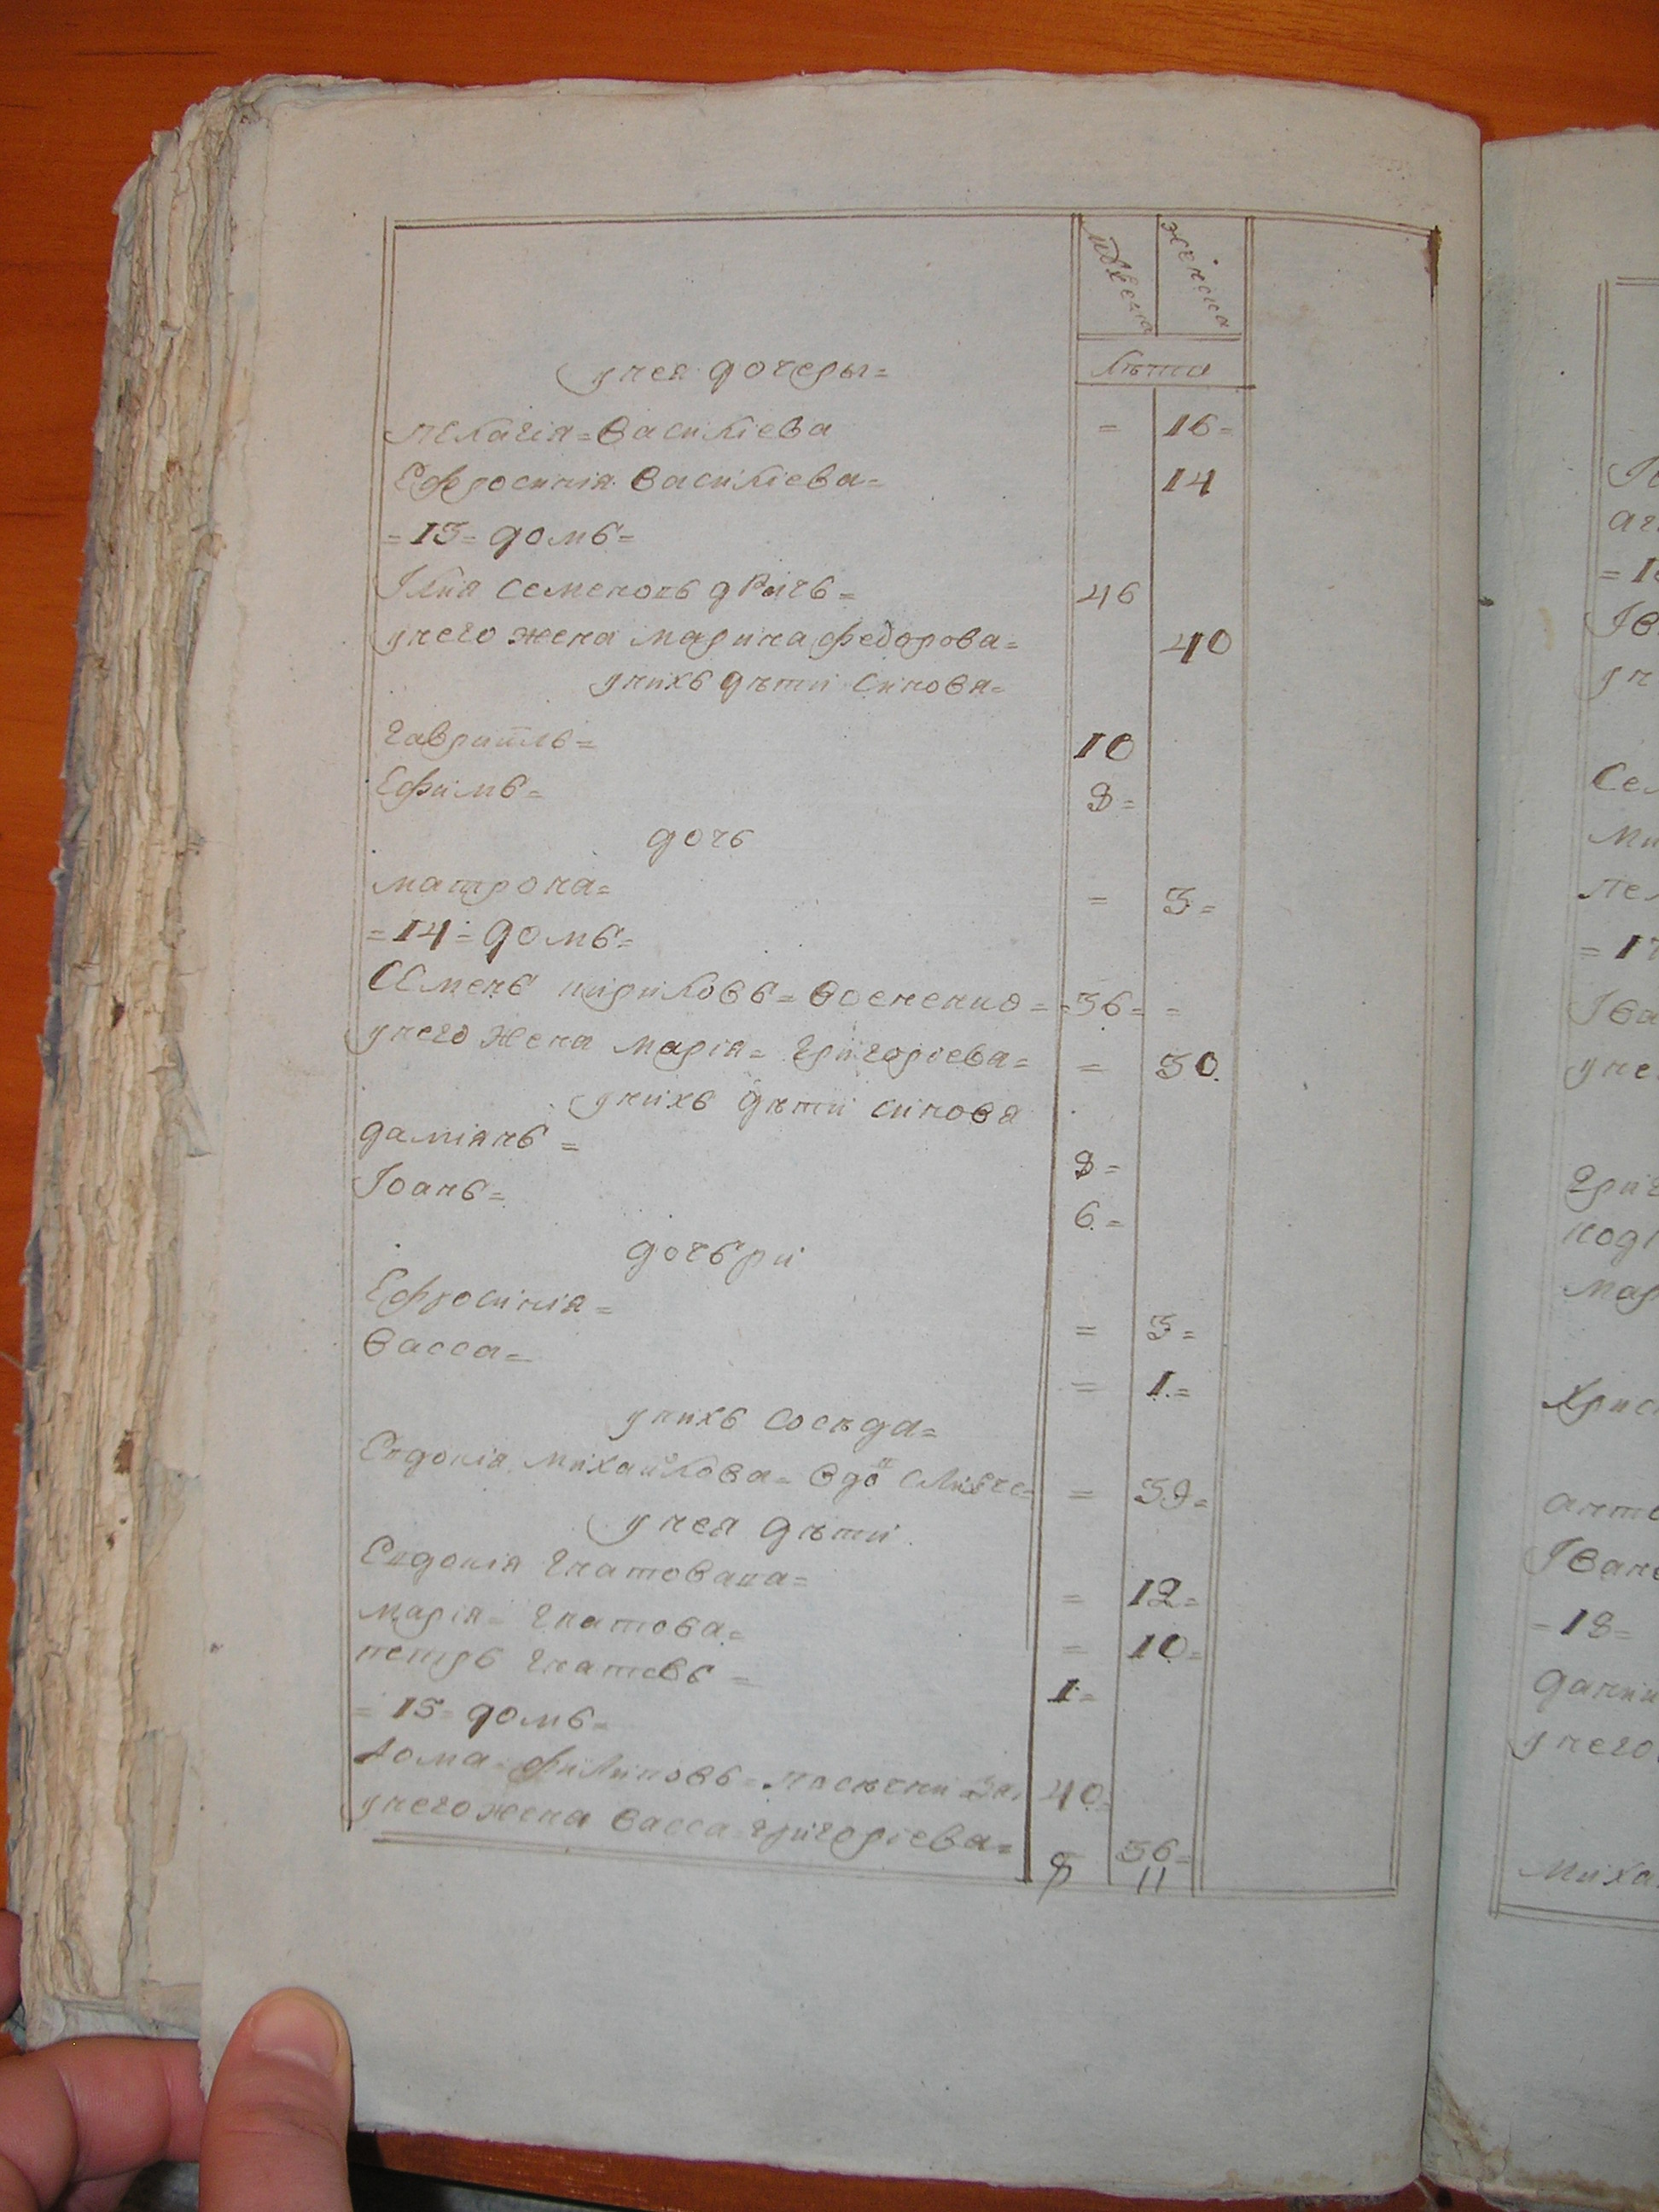 мужеска женска
лѣта
унея дочеры=
пелагія=Василіева = 16=
Ефросинія Василіева= 14
=13= домъ=
Ілия Семеновъ 46
унего жена марина федорова= 40
унихъ дѣти синовя=
гавриилъ= 10
Ефимъ= 8=
дочъ
матрона= = 3=
=14= домъ=
Семенъ кириловъ= Воененко= =36= =
унего жена марія= григоріева= = 30.
унихъ дѣти синовя
даміянъ= 8=
Іоанъ= 6.=
дочъри
Ефросинія= = 3=
Васса= = 1.=
унихъ сосѣда=
Евдокія михайлова= вдо = 39=
унея дѣти
Евдокія гнатована= = 12=
марія= гнатова= = 10=
петръ гнатовъ= 1=
=15= домъ=
фома= филиповъ= 40=
унего жена Васса григоріева= = 36=
9 11
Іва
Сем
ми
пел
= 17
Іва
уне
григ
мар
Хрис
анто
Іванъ
=18=
дании
унего
миха